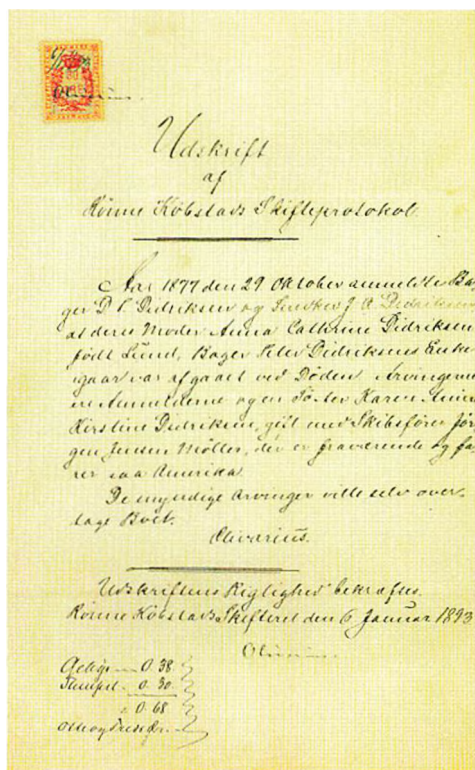 Udskrift
af
Rönne Köbstads Skifteprotokol.
Aar 1877 den 29 Oktober anmeldte Ba-
ger D P. Didriksen og Smedker J. A. Didriksen,
at deres Moder Anna Cathrine Didriksen
født Lund, Bager Peter Didriksens Enke
igaar var afgaaet ved Döden. Arvingerne
ere Anmelderne og en Söster Karen Anine
Kirstine Didriksen, gift med Skibsfører Jör-
gen Jensen Möller, der er fraværende og fa-
rer paa Amerika.
De myndige Arvinger ville selv over-
tage Boet.
Olivarius.
Udskriftens Rigtighed bekræftes.
Rönne Köbstads Skifteret den 6 Januar 1893
Olivarius
0. 38
Stempel 0. 30
0. 68